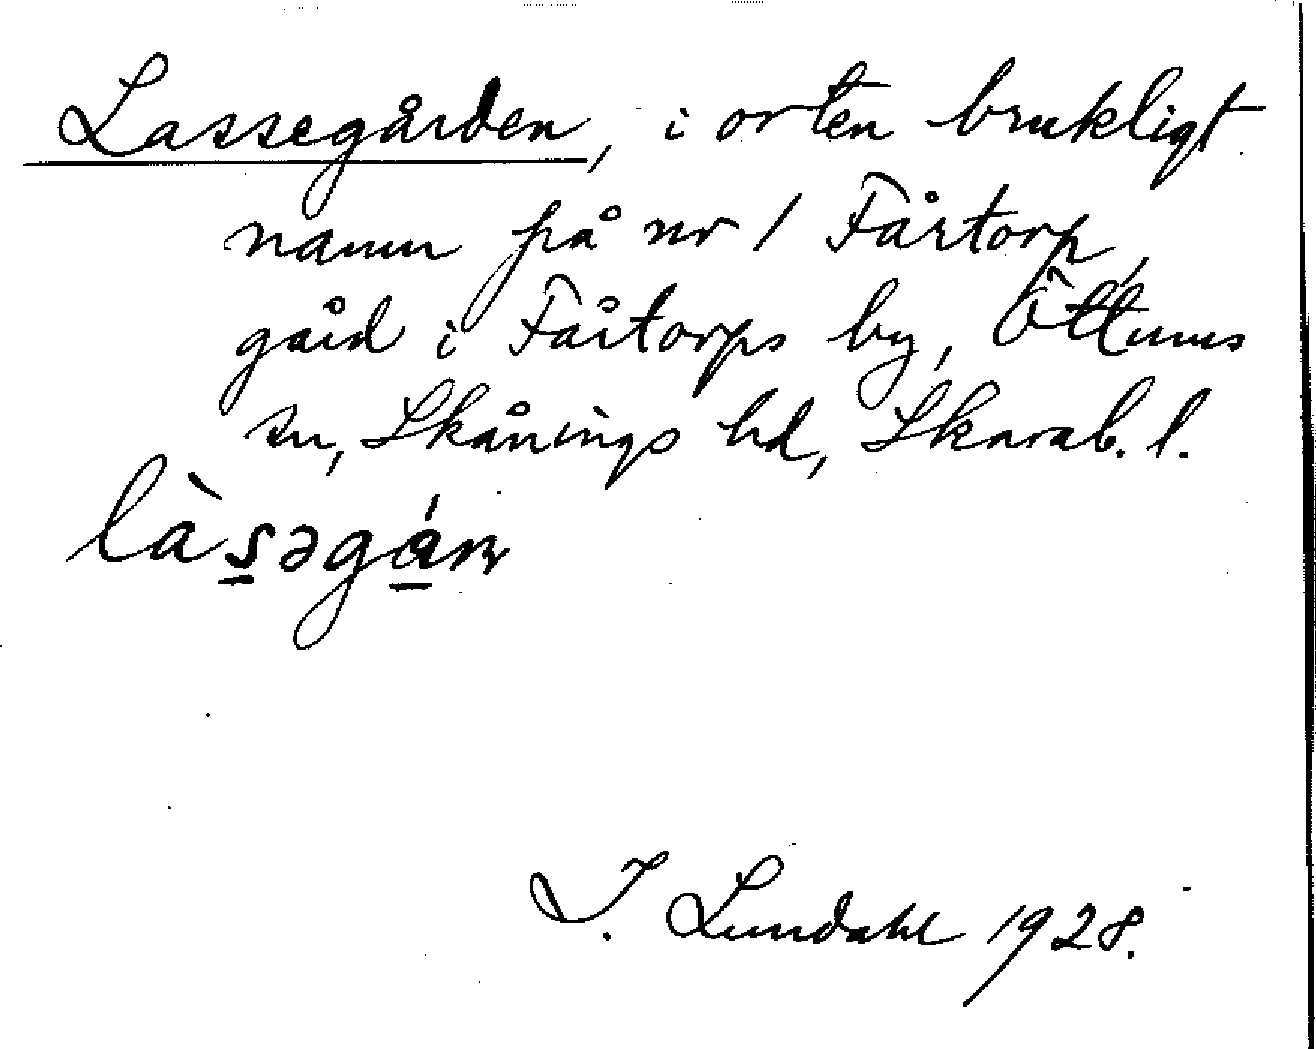 Lassegården, i orten brukligt
namn på nr 1 Fårtorp,
gård i Fårtorps by, Öttums
sn, Skånings hd, Skarab. l.
làs̲əgá̲ɳ
I. Lundahl 1928.